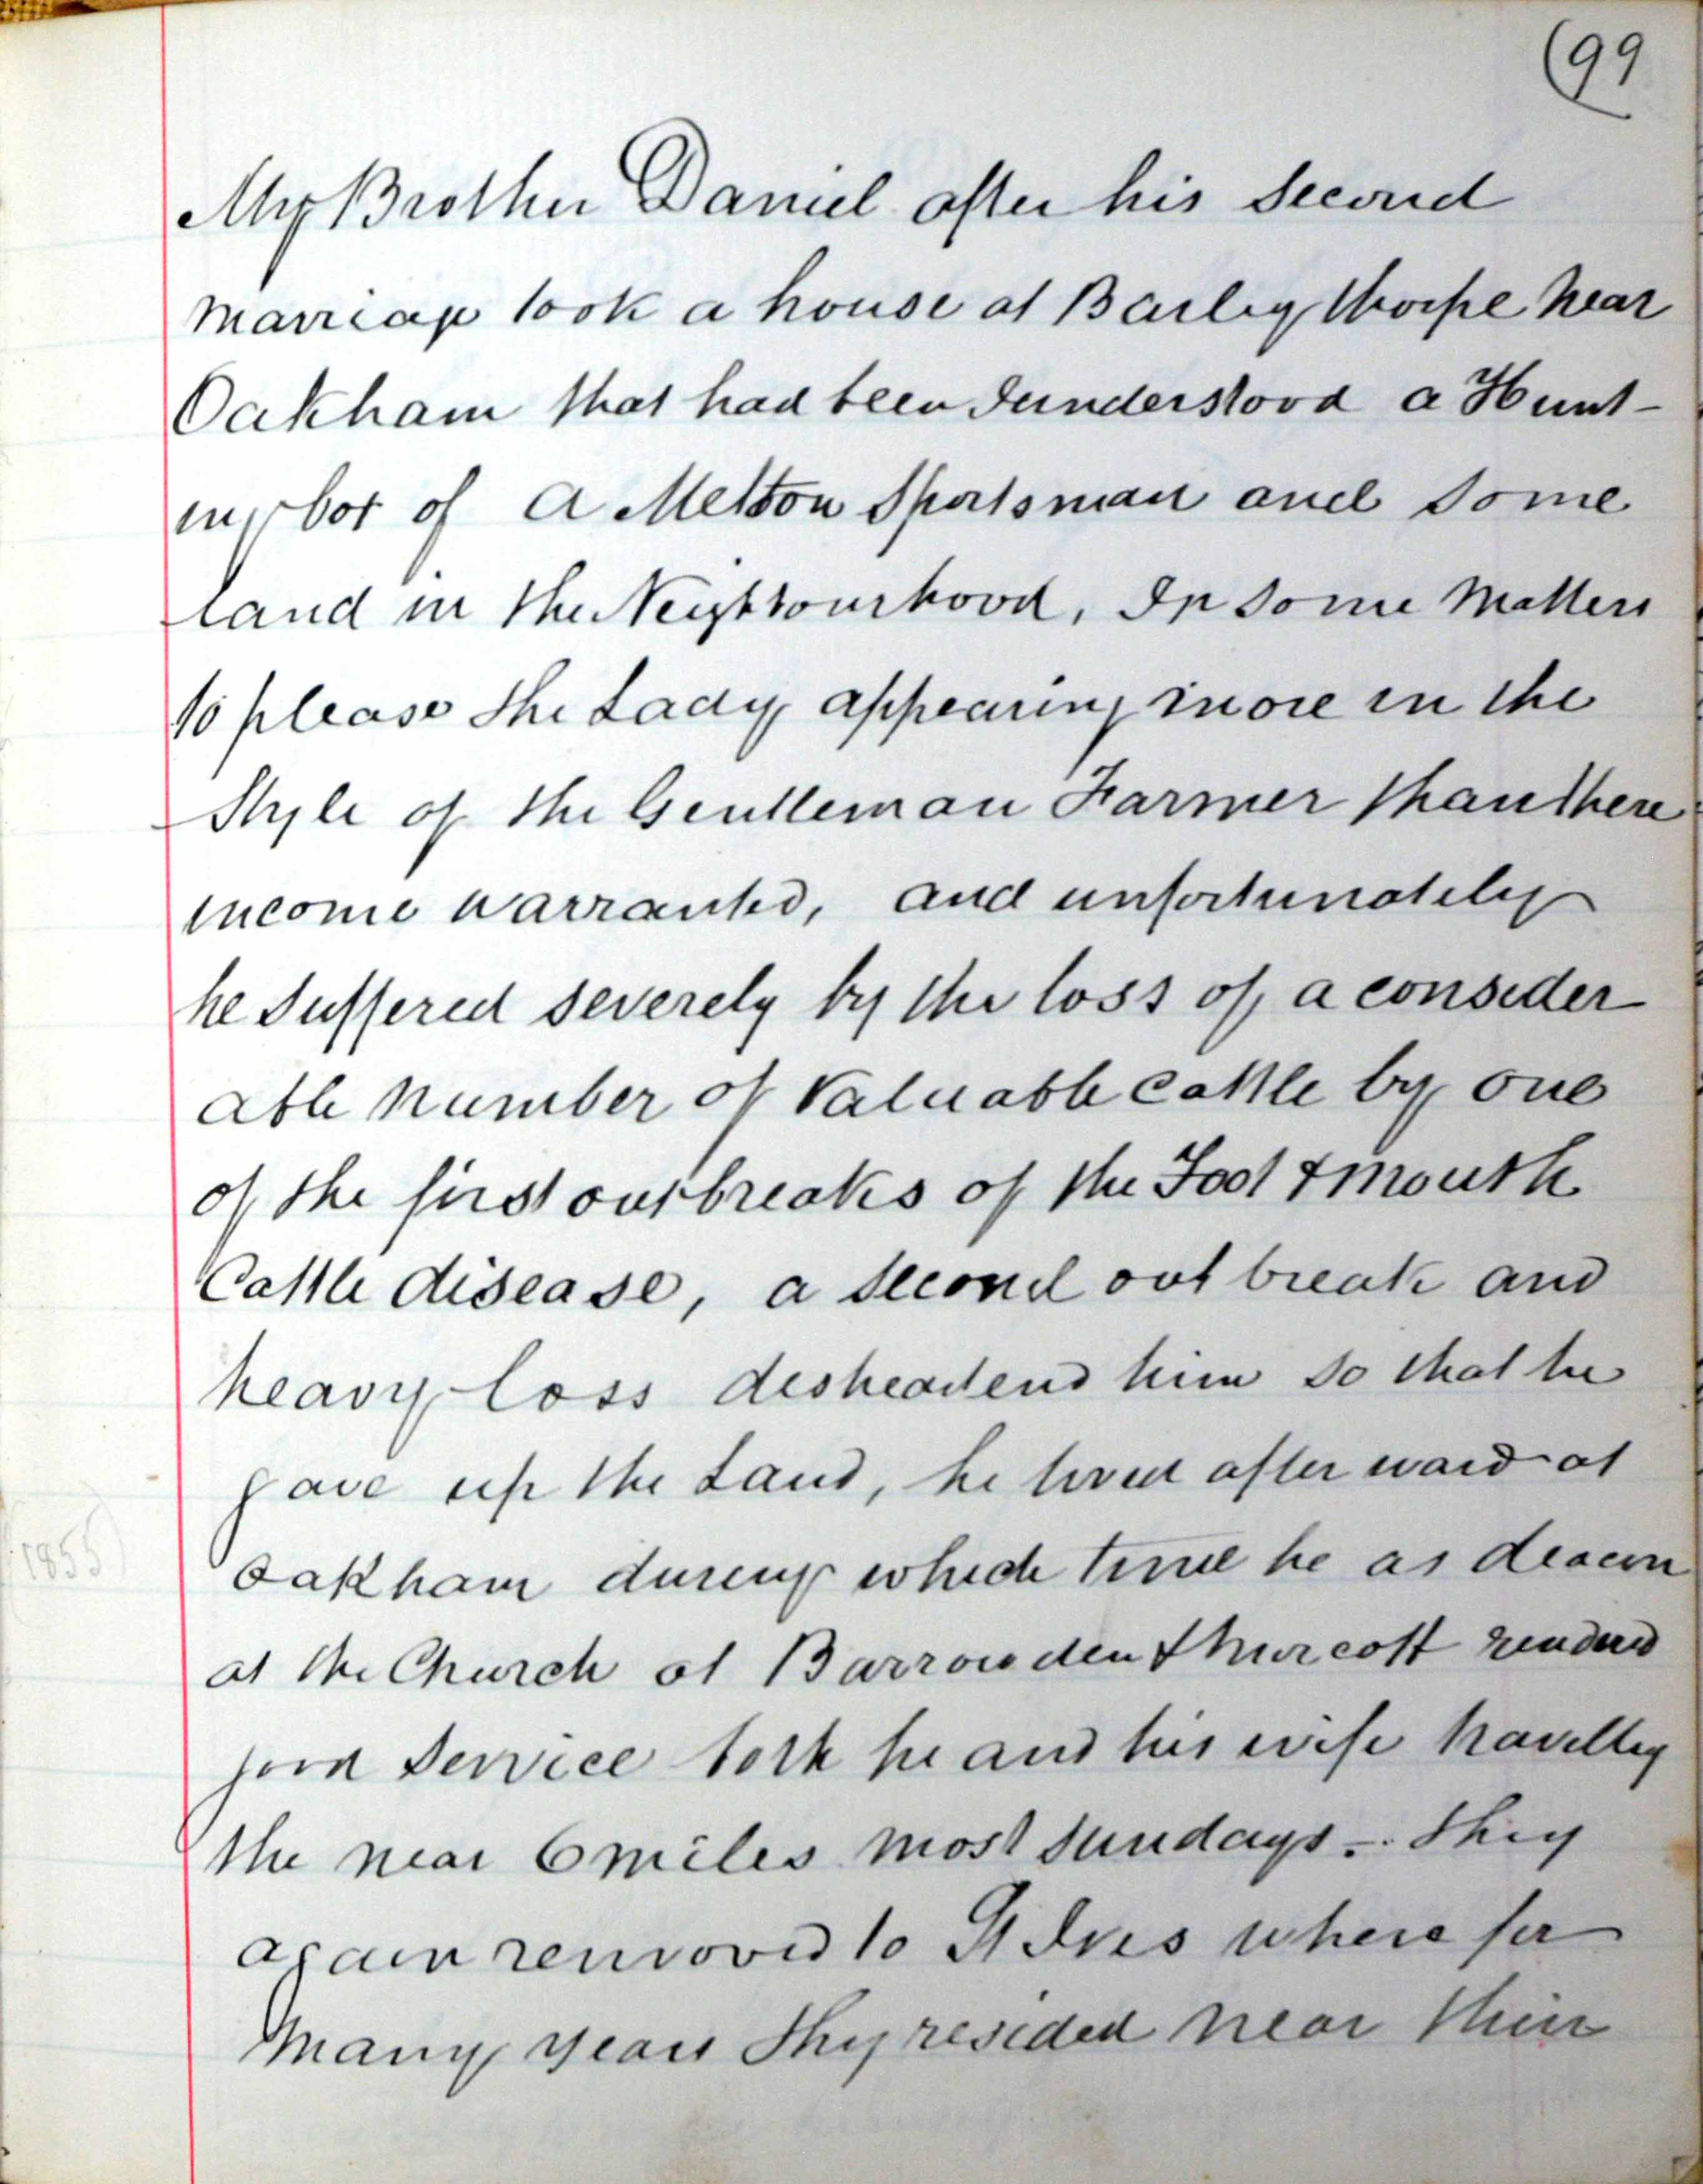 (99
My Brother Daniel after his second
Marriage took a house at Barleythorpe near
Oakham that had been I understood a Hunt-
ing box of a Melton Sportsman and some
land in the Neighbourhood, In some Matters
to please the Lady appearing more in the
Style of the Gentleman Farmer than there
income warranted, and unfortunately
he suffered severely by the loss of a consider
able number of Valuable cattle by one
of the first outbreaks of the Foot & mouth
Cattle disease, a second out break and
heavy loss desheartend him so that he
gave up the Land, he lived after ward at
(1855)
Oakham during which time he as deacon
at the Church at Barrowden & Morcott rendered
good service both he and his wife travelling
the near 6 miles most Sundays - They
again removed to St Ives where for
Many years they resided near their